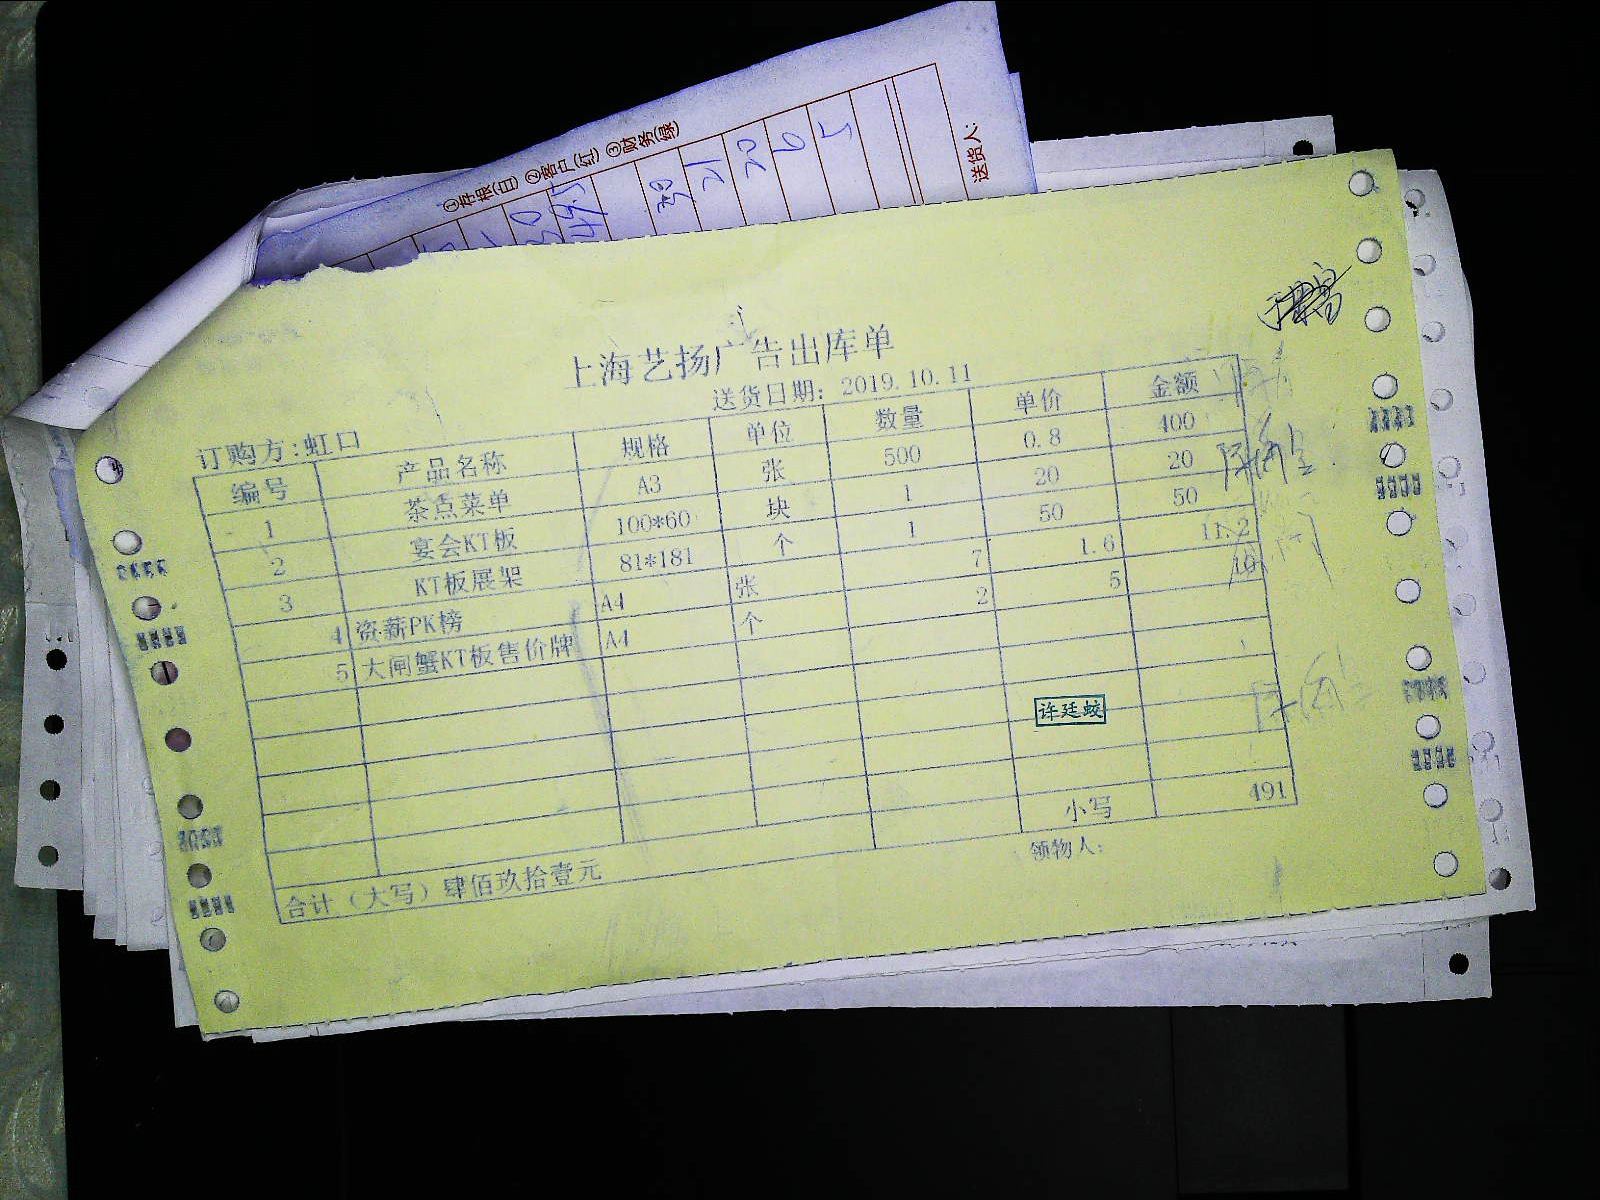 ①存根(白) ②客户(红) ③财务(绿)
送货人:
30
45.5
38
21
20
6
5
上海艺扬广告出库单
送货日期: 2019.10.11
订购方:虹口
编号 产品名称 规格 单位 数量 单价 金额
1 茶点菜单 A3 张 500 0.8 400
2 宴会KT板 100*60 块 1 20 20
3 KT板展架 81*181 个 1 50 50
4 资薪PK榜 A4 张 7 1.6 11.2
5 大闸蟹KT板售价牌 A4 个 2 5 10
许廷蛟
合计（大写）肆佰玖拾壹元 小写 491
领物人: